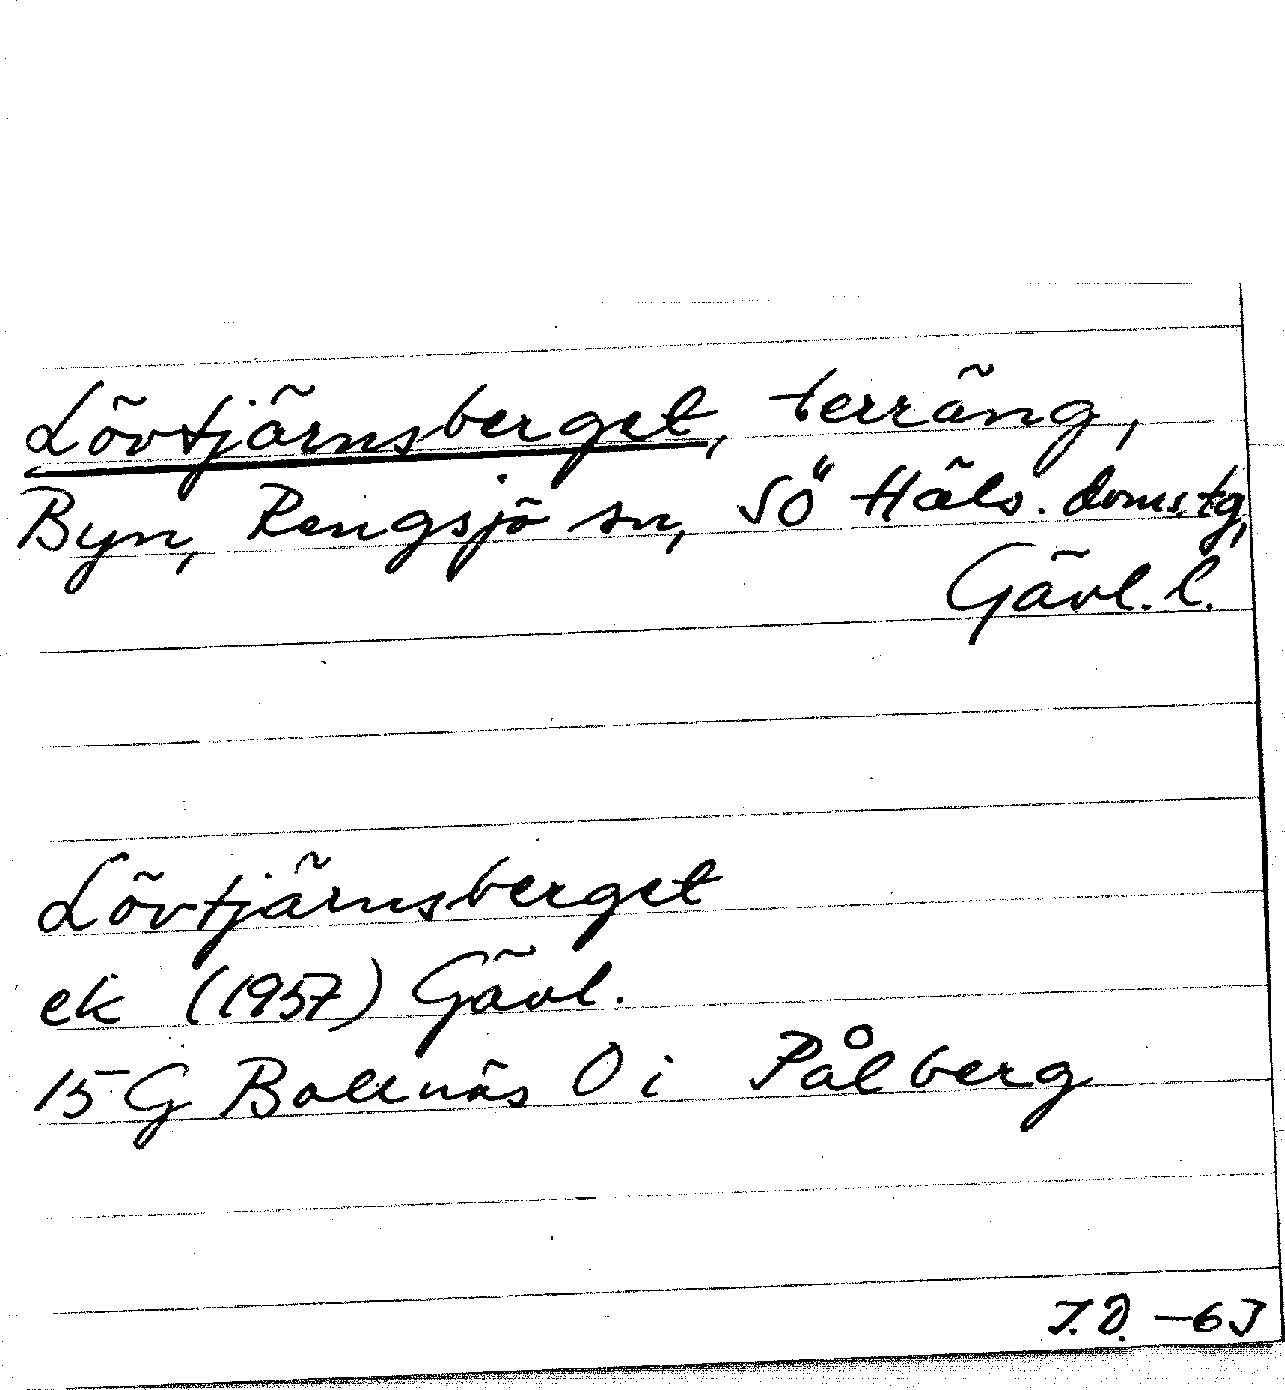 Lövtjärnsberget, terräng,
Byn, Rengsjö sn, SÖ Häls. doms.tg,
Gävl. l.
Lövtjärnsberget
ek (1957) Gävl.
15 G Bollnäs O i Pålberg
I.D. -63